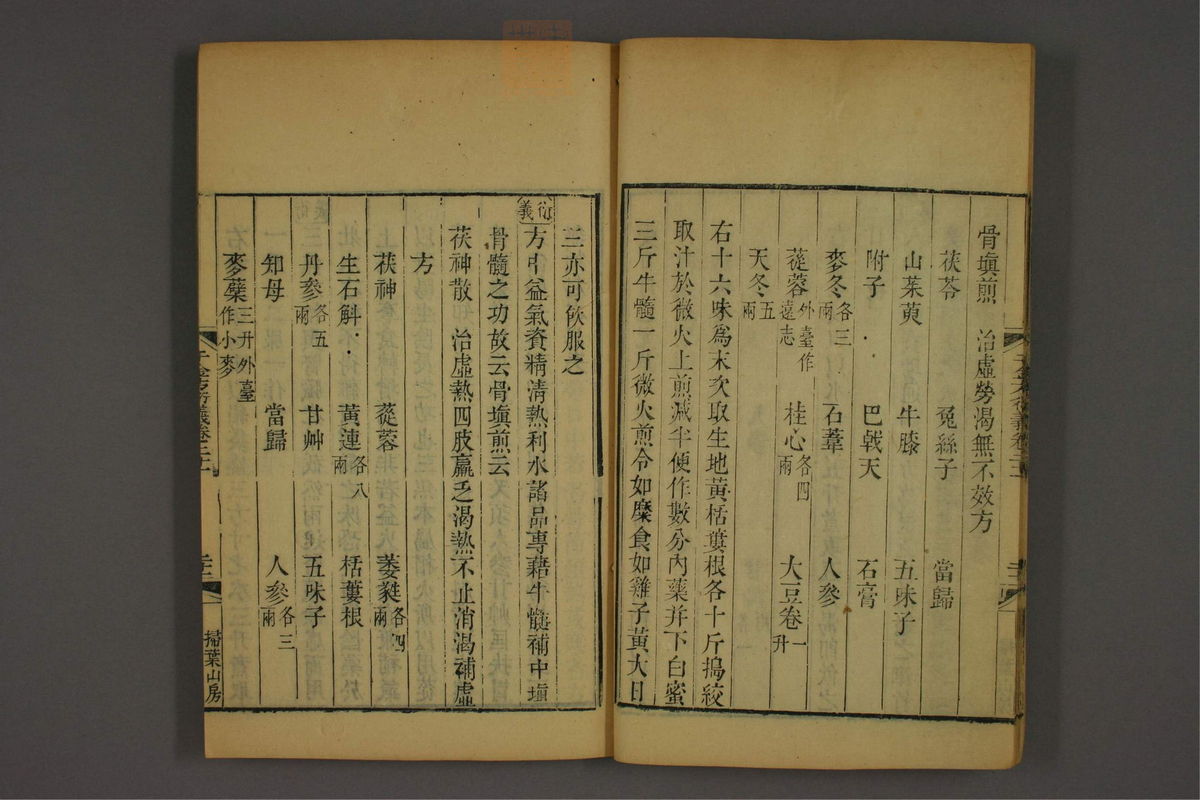 骨塡煎　治虛勞渴無不效方
茯苓　兔絲子　當歸
山茱萸　牛膝　五味子
附子　巴戟天　石膏
麥冬各三兩　石葦　人參
蓯蓉外臺作遠志　桂心各四兩　大豆卷一升
天冬五兩
右十六味爲末次取生地黃栝蔞根各十斤搗絞
取汁於微火上煎減半便作數分內藥并下白蜜
三斤牛髓一斤微火煎令如糜食如雞子黃大日
三亦可飲服之
衍義方中益氣資精淸熱利水諸品專藉牛髓補中塡
骨髓之功故云骨塡煎云
茯神散　治虛熱四肢羸乏渴熱不止消渴補虛
方
茯神　蓯蓉　萎蕤各四兩
生石斛　黃連各八兩　栝蔞根
丹參各五兩　甘艸　五味子
知母　當歸　人參各三兩
麥蘗三升外臺作小麥
掃葉山房